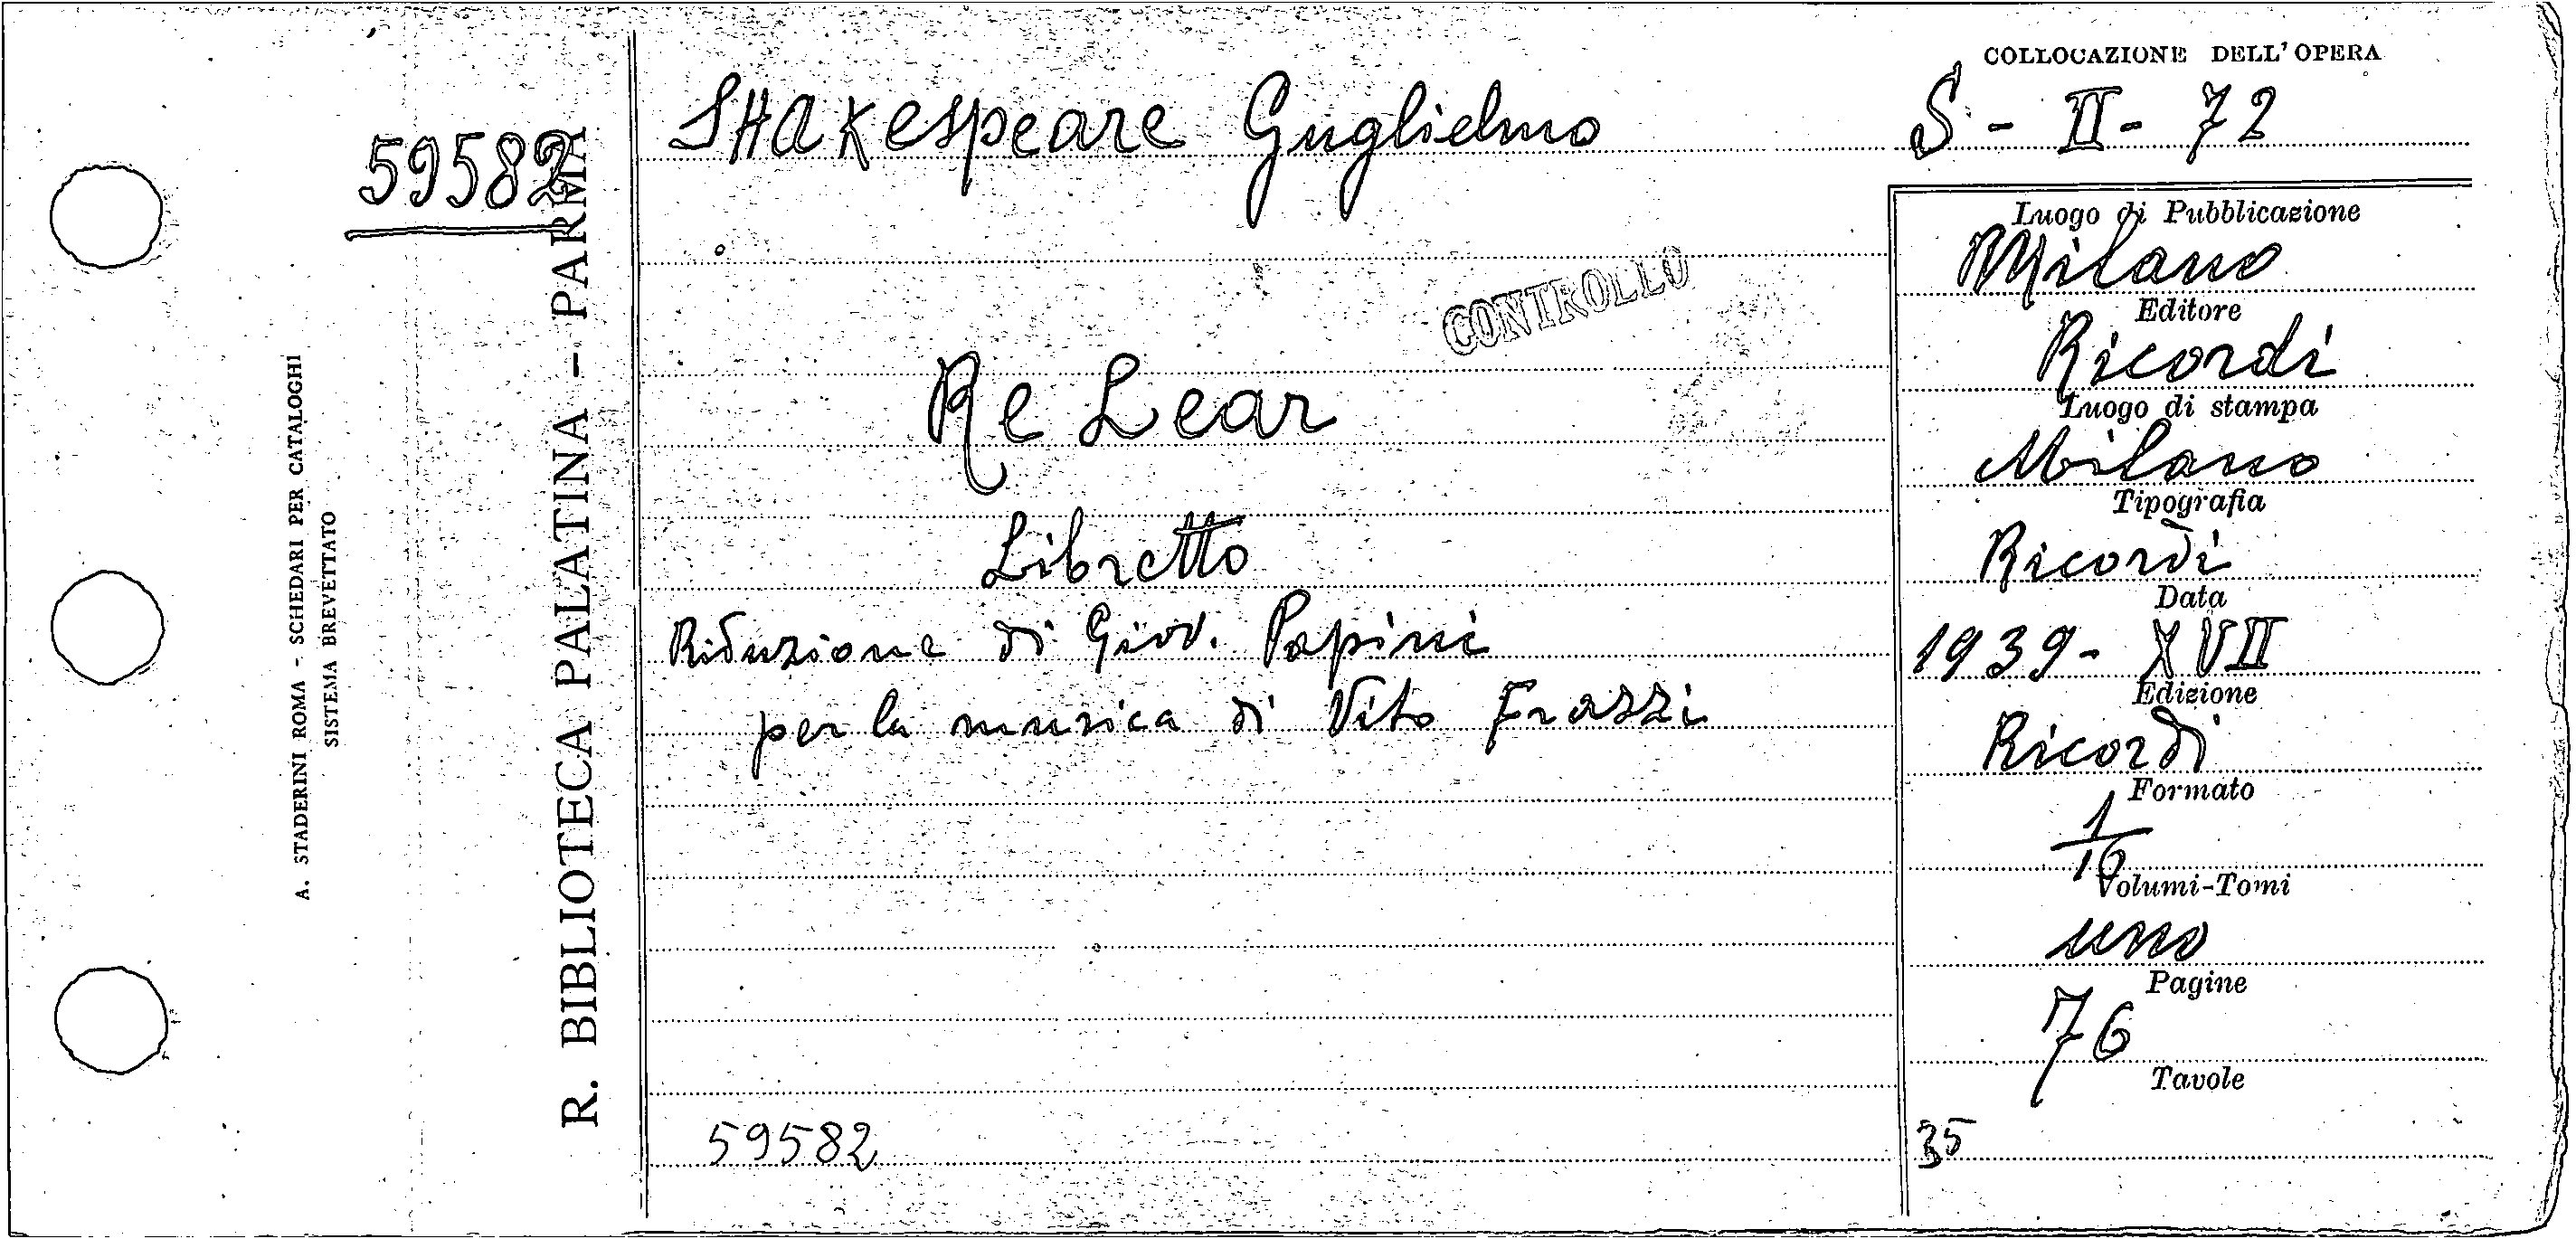 59582
A. STADERINI ROMA - SCHEDARI PER CATALOGHI
SISTEMA BREVETTATO
R. BIBLIOTECA PALATINA - PARMA
SHAkespeare Guglielmo
CONTROLLO
Re Lear
Libretto
Riduzione di Giov. Papini
per la musica di Vito Frazzi
59582
COLLOCAZIONE DELL'OPERA
S - II - 72
Luogo di Pubblicazione
Milano
Editore
Ricordi
Luogo di stampa
Milano
Tipografia
Ricordi
Data
1939 - XVII
Edizione
Ricordi
Formato
1/16
Volumi-Tomi
uno
Pagine
76
Tavole
35